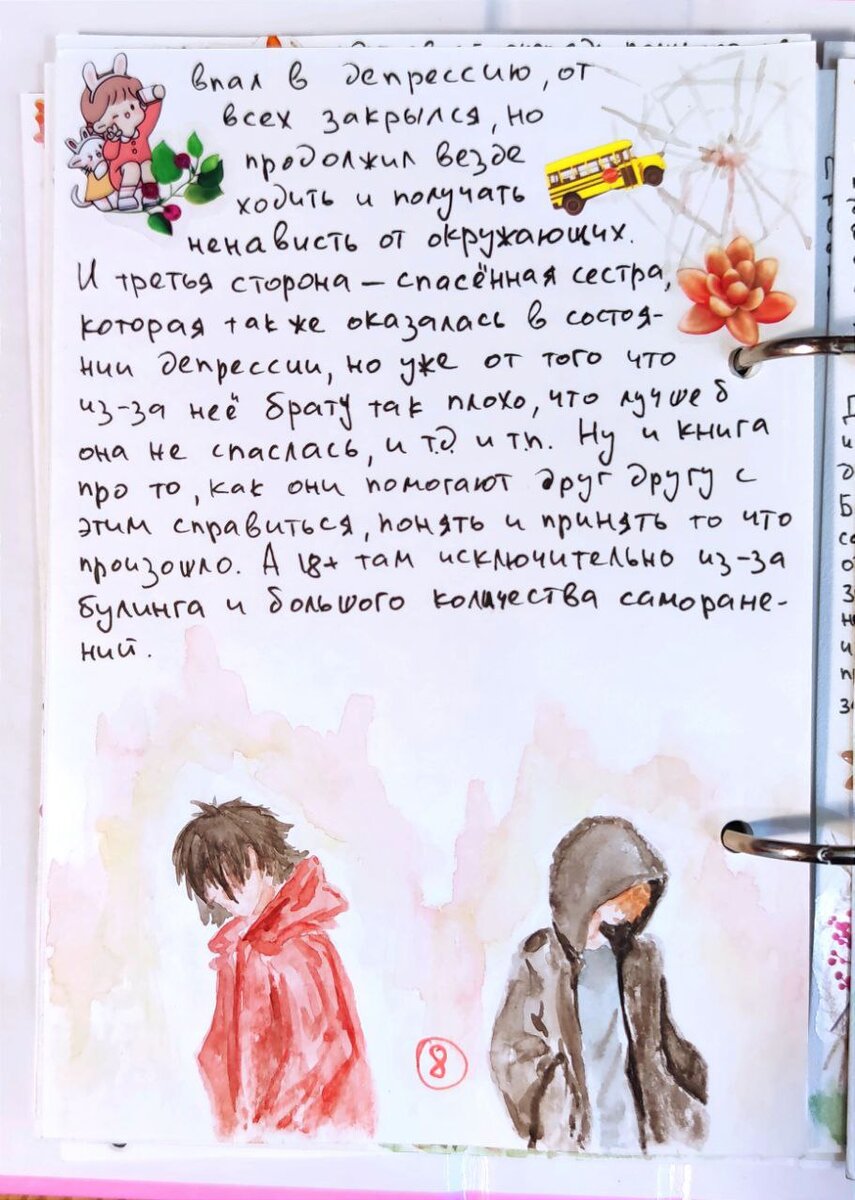 впал в депрессию, от
всех закрылся, но
продолжил везде
ходить и получать
ненависть от окружающих.
И третья сторона – спасённая сестра,
которая также оказалась в состоя-
нии депрессии, но уже от того что
из-за неё брату так плохо, что лучше б
она не спаслась, и т.д. и т.п. Ну и книга
про то, как они помогают друг другу с
этим справиться, понять и принять то что
произошло. А 18+ там исключительно из-за
булинга и большого количества саморане-
ний.
8